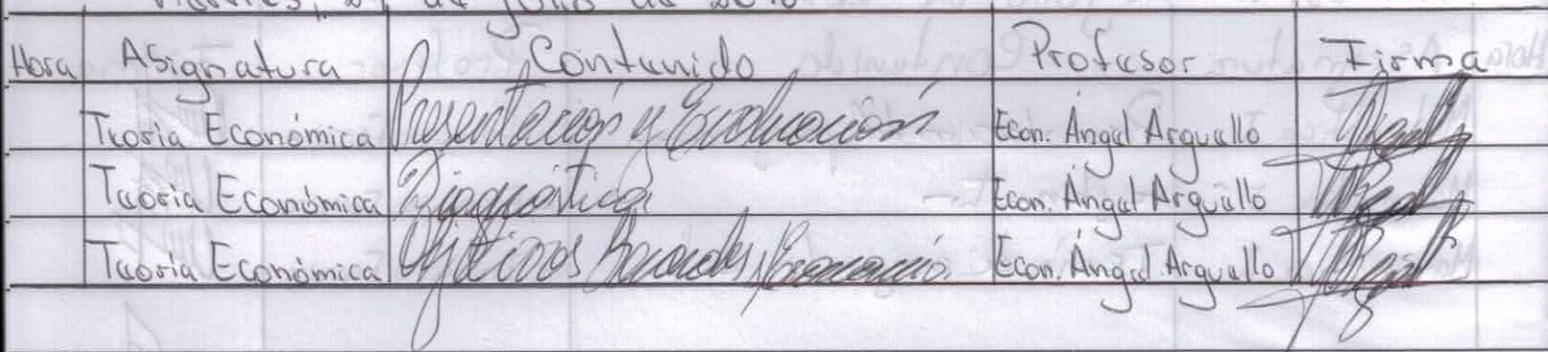 de julio de
Hora Asignatura Contenido Profesor Firma
Teoria Económica Presentación y Evaluación Econ. Ángel Arguello
Teoria Económica Diagnóstica Econ. Ángel Argüello
Teoria Económica Objetivos Econ. Ángel Arguello